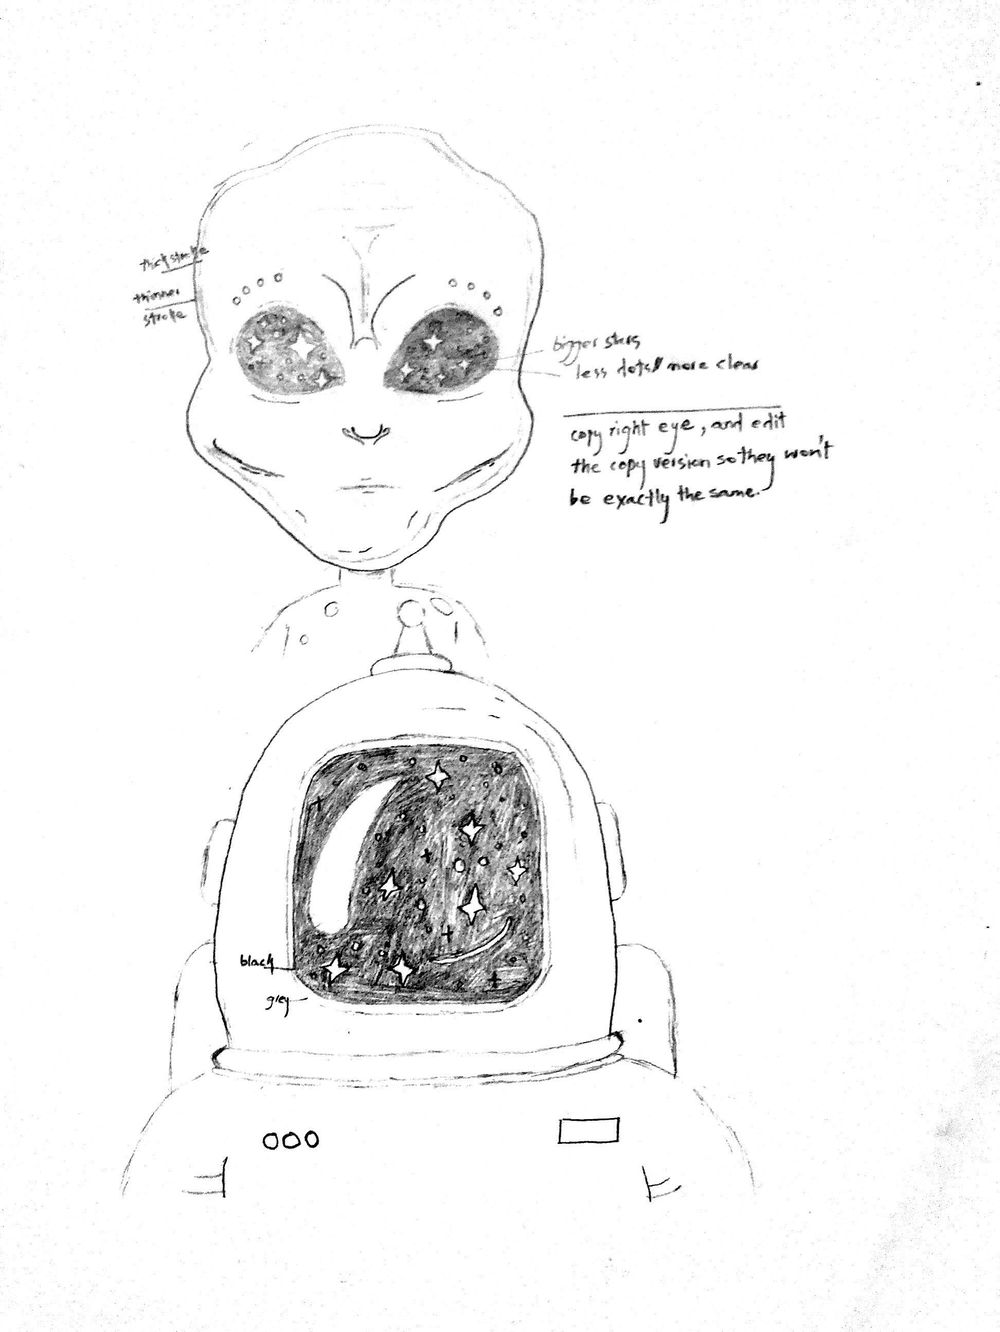 thick stroke
thinner
stroke
bigger stars
less dots/more clear
copy right eye, and edit
the copy version so they won't
be exactly the same.
black
grey